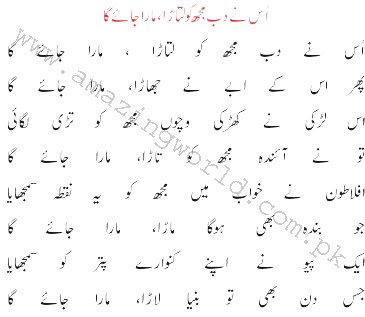 اُس نے دب مجھ کو لتاڑا، مارا جائے گا
اُس نے دب مجھ کو لتاڑا ، مارا جائے گا
پھر اس کے ابے نے جھاڑا، مارا جائے گا
اس لڑکی نے کھڑکی وچوں مجھ کو تڑی لگائی
تو نے آئندہ مجھ کو تاڑا، مارا جائے گا
افلاطون نے خواب میں مجھ کو یہ نقطہ سمجھایا
جو بندہ بھی ہوگا ماڑا، مارا جائے گا
ایک پیو نے اپنے کنوارے پتر کو سمجھایا
جس دن بھی تو بنیا لاڑا، مارا جائے گا
www.amazingworld.com.pk